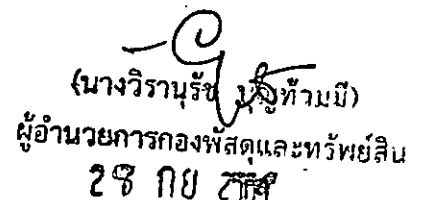 (นางวิรานุรัช ท้วมมี)
ผู้อำนวยการกองพัสดุและทรัพย์สิน
28 กย